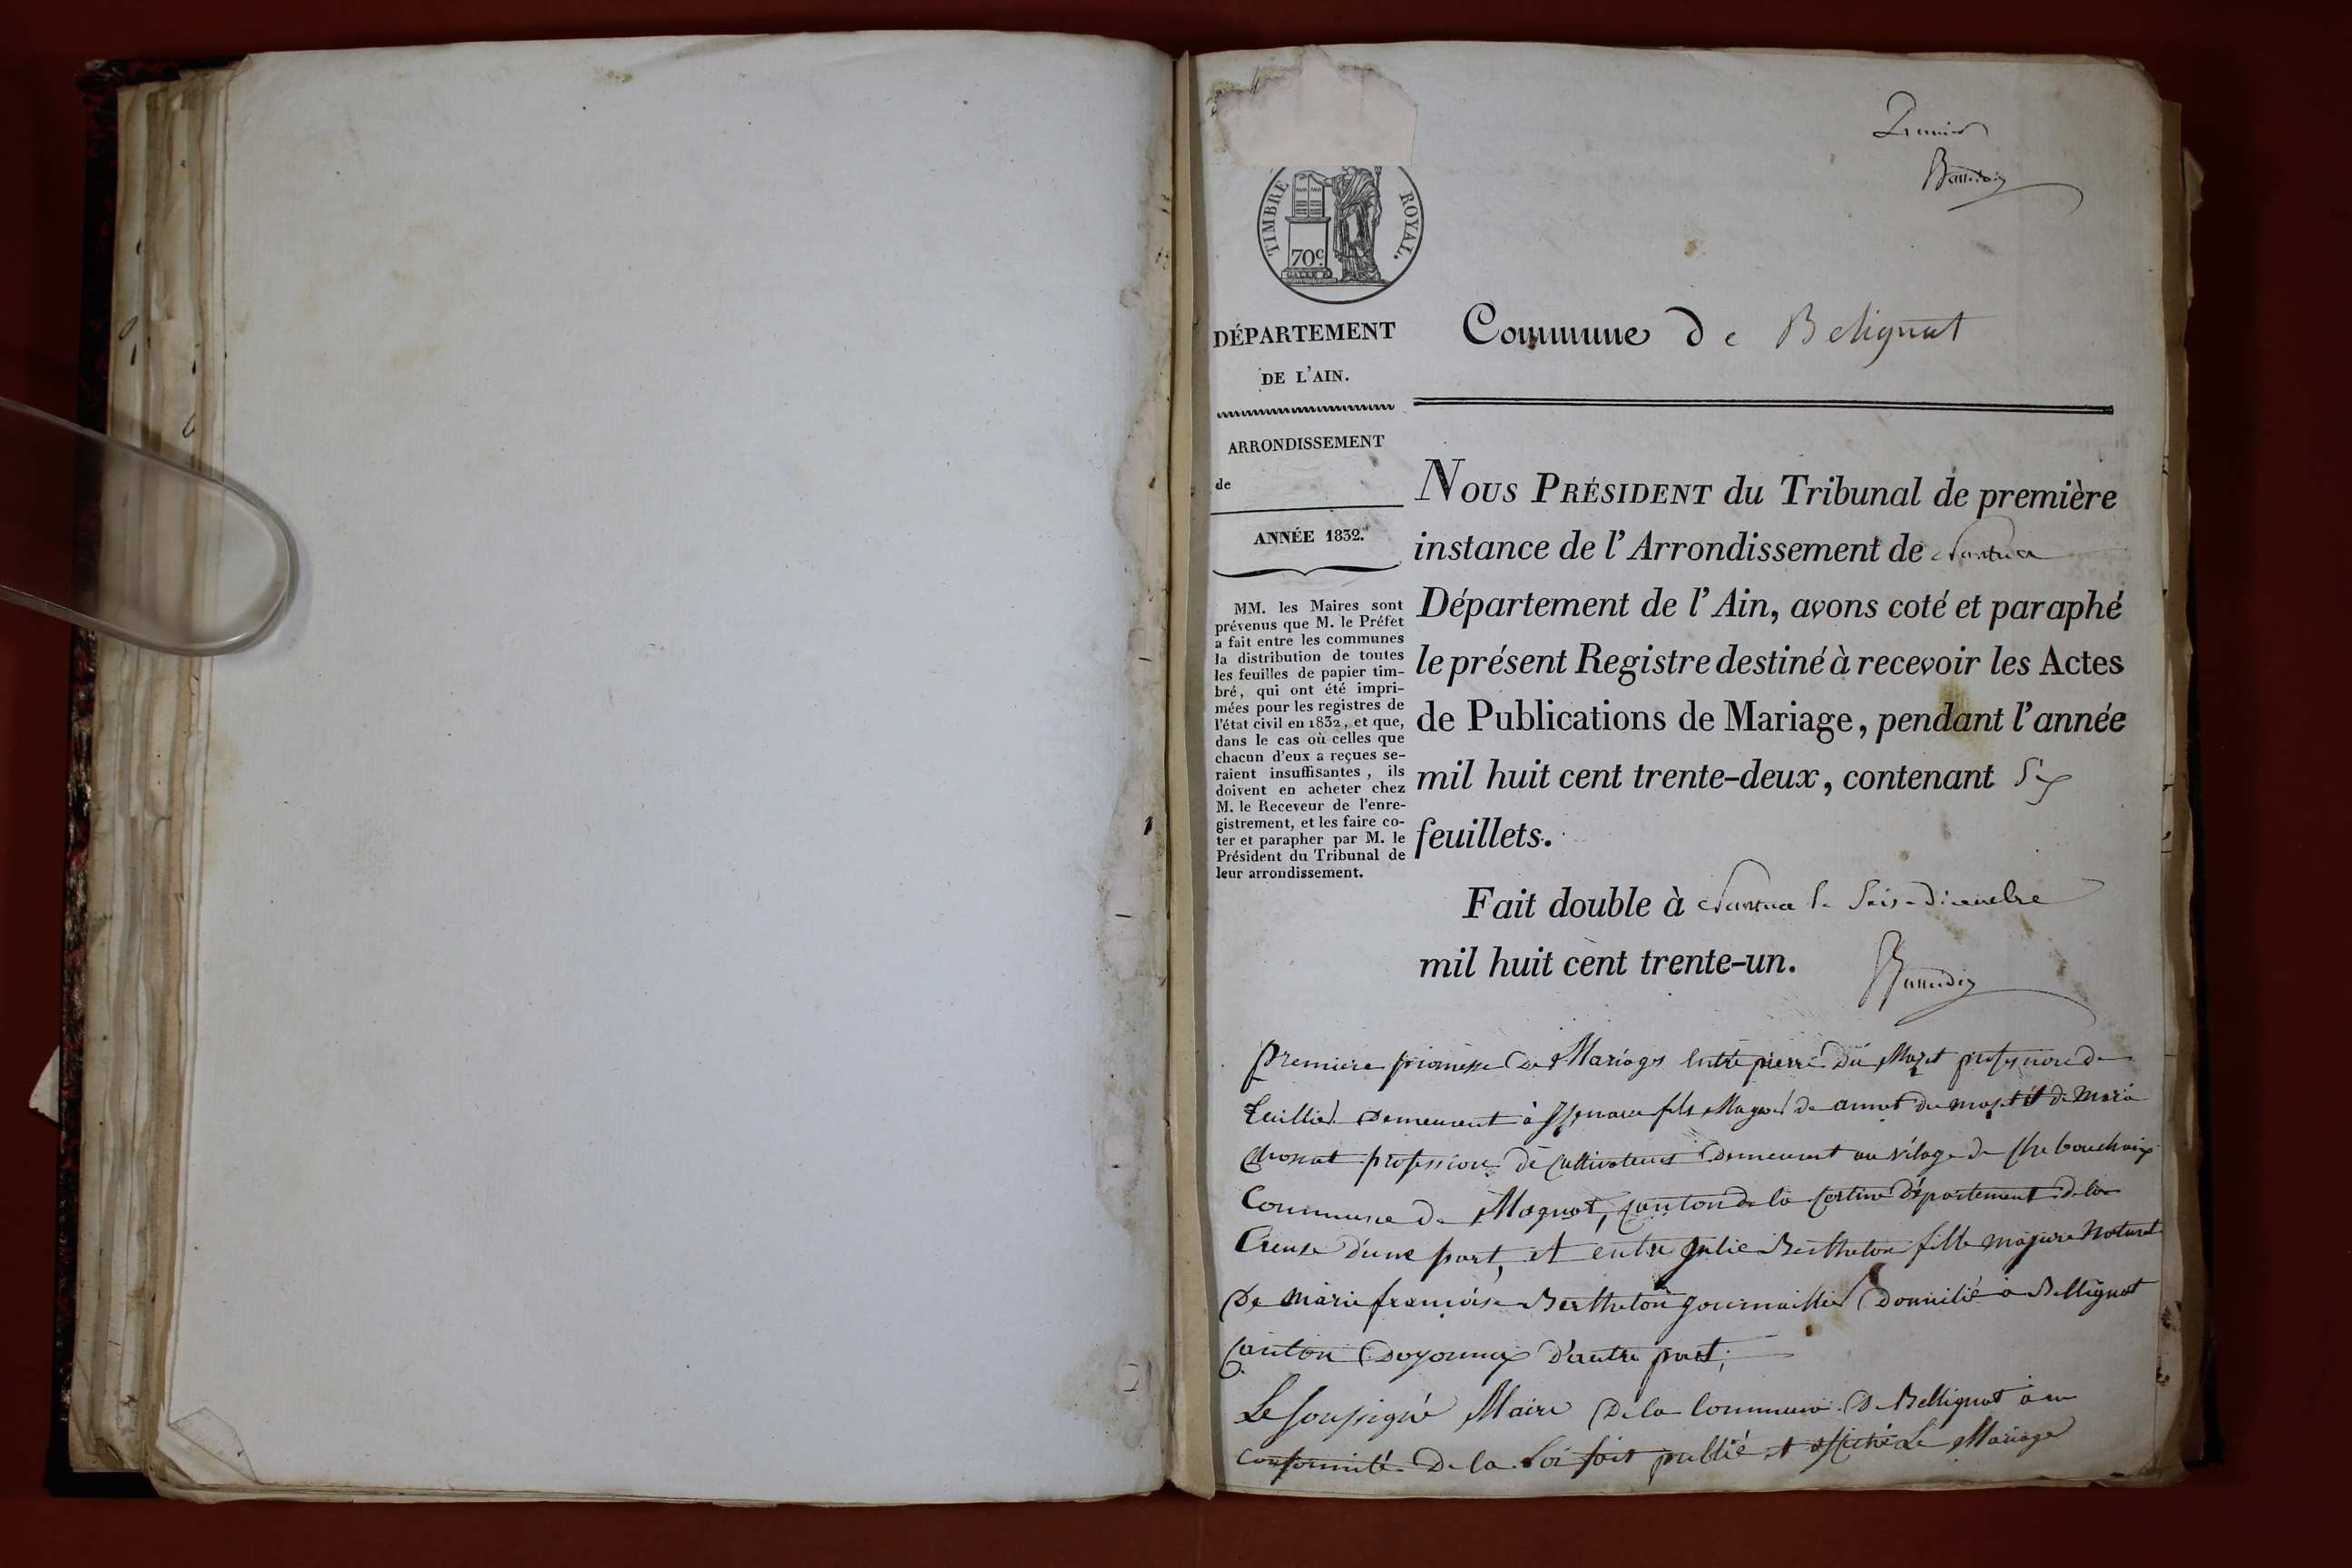 Premier
Baudin
TIMBRE ROYAL.
70c.
DÉPARTEMENT
DE L'AIN.
Commune de Belignat
ARRONDISSEMENT
de
ANNÉE 1832.
MM. les Maires sont
prévenus que M. le Préfet
a fait entre les communes
la distribution de toutes
les feuilles de papier tim-
bré, qui ont été impri-
mées pour les registres de
l'état civil en 1832, et que,
dans le cas où celles que
chacun d'eux a reçues se-
raient insuffisantes, ils
doivent en acheter chez
M. le Receveur de l'enre-
gistrement, et les faire co-
ter et parapher par M. le
Président du Tribunal de
leur arrondissement.
NOUS PRÉSIDENT du Tribunal de première
instance de l'Arrondissement de Nantua
Département de l'Ain, avons coté et paraphé
le présent Registre destiné à recevoir les Actes
de Publications de Mariage, pendant l'année
mil huit cent trente-deux, contenant Six
feuillets.
Fait double à Nantua le Seize Décembre
mil huit cent trente-un.
Baudin
Premiere promesse de Mariage Entre pierre Du Mazet profession de
demeurant à fils Majeur de annet du mazet et de Marie
profession de Cultivateurs demeurant au vilage de
Commune de Magnat, canton de la Cortine département de la
Creuse d'une part, et entre Julie Bertheton fille majeure Naturel
De marie francoise Bertheton journaillier Domicilié à Bellignat
Canton Doyonnax d'autre part;
Le Soussigné Maire De la Commune De Bellignat à en
conformité De la Loi fait publié et affiché Le Mariage